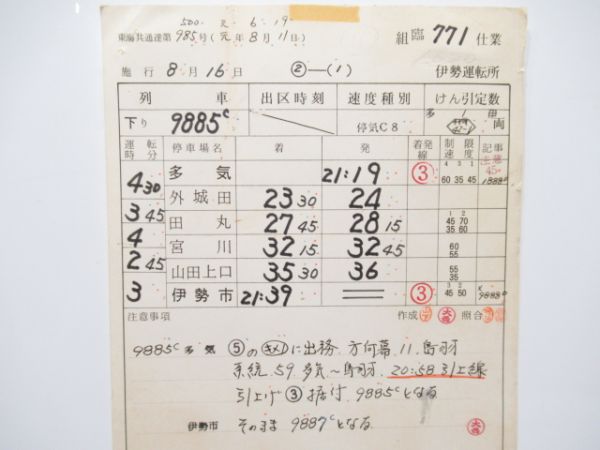 500. 2. 6. 19
東海共通達第985号(元年8月11日) 組臨 771 仕業
施行 8月16日 ②—(1) 伊勢運転所
列 車 出区時刻 速度種別 けん引定数
下り 9885c 停気C8 両
運転時分 停車場名 着 発 着発線 制限速度 記事
多気 21:19 ③ 4 3 1 60 35 45
4 30
外城田 23 30 24
3 45
田丸 27 45 28 15 1 2 45 70 35 60
4
宮川 32 15 32 45 60 55
2 45
山田上口 35 30 36 55 35
3
伊勢市 21:39 ③ 1 2 45 50 9885c
注意事項 作成 照合
9885c 多気 ⑤の に出務 方向幕.11.鳥羽
系統.59.多気〜鳥羽. 20:58 引上線
引上げ ③ 据付 9885cとなる
伊勢市 そのまま 9887cとなる